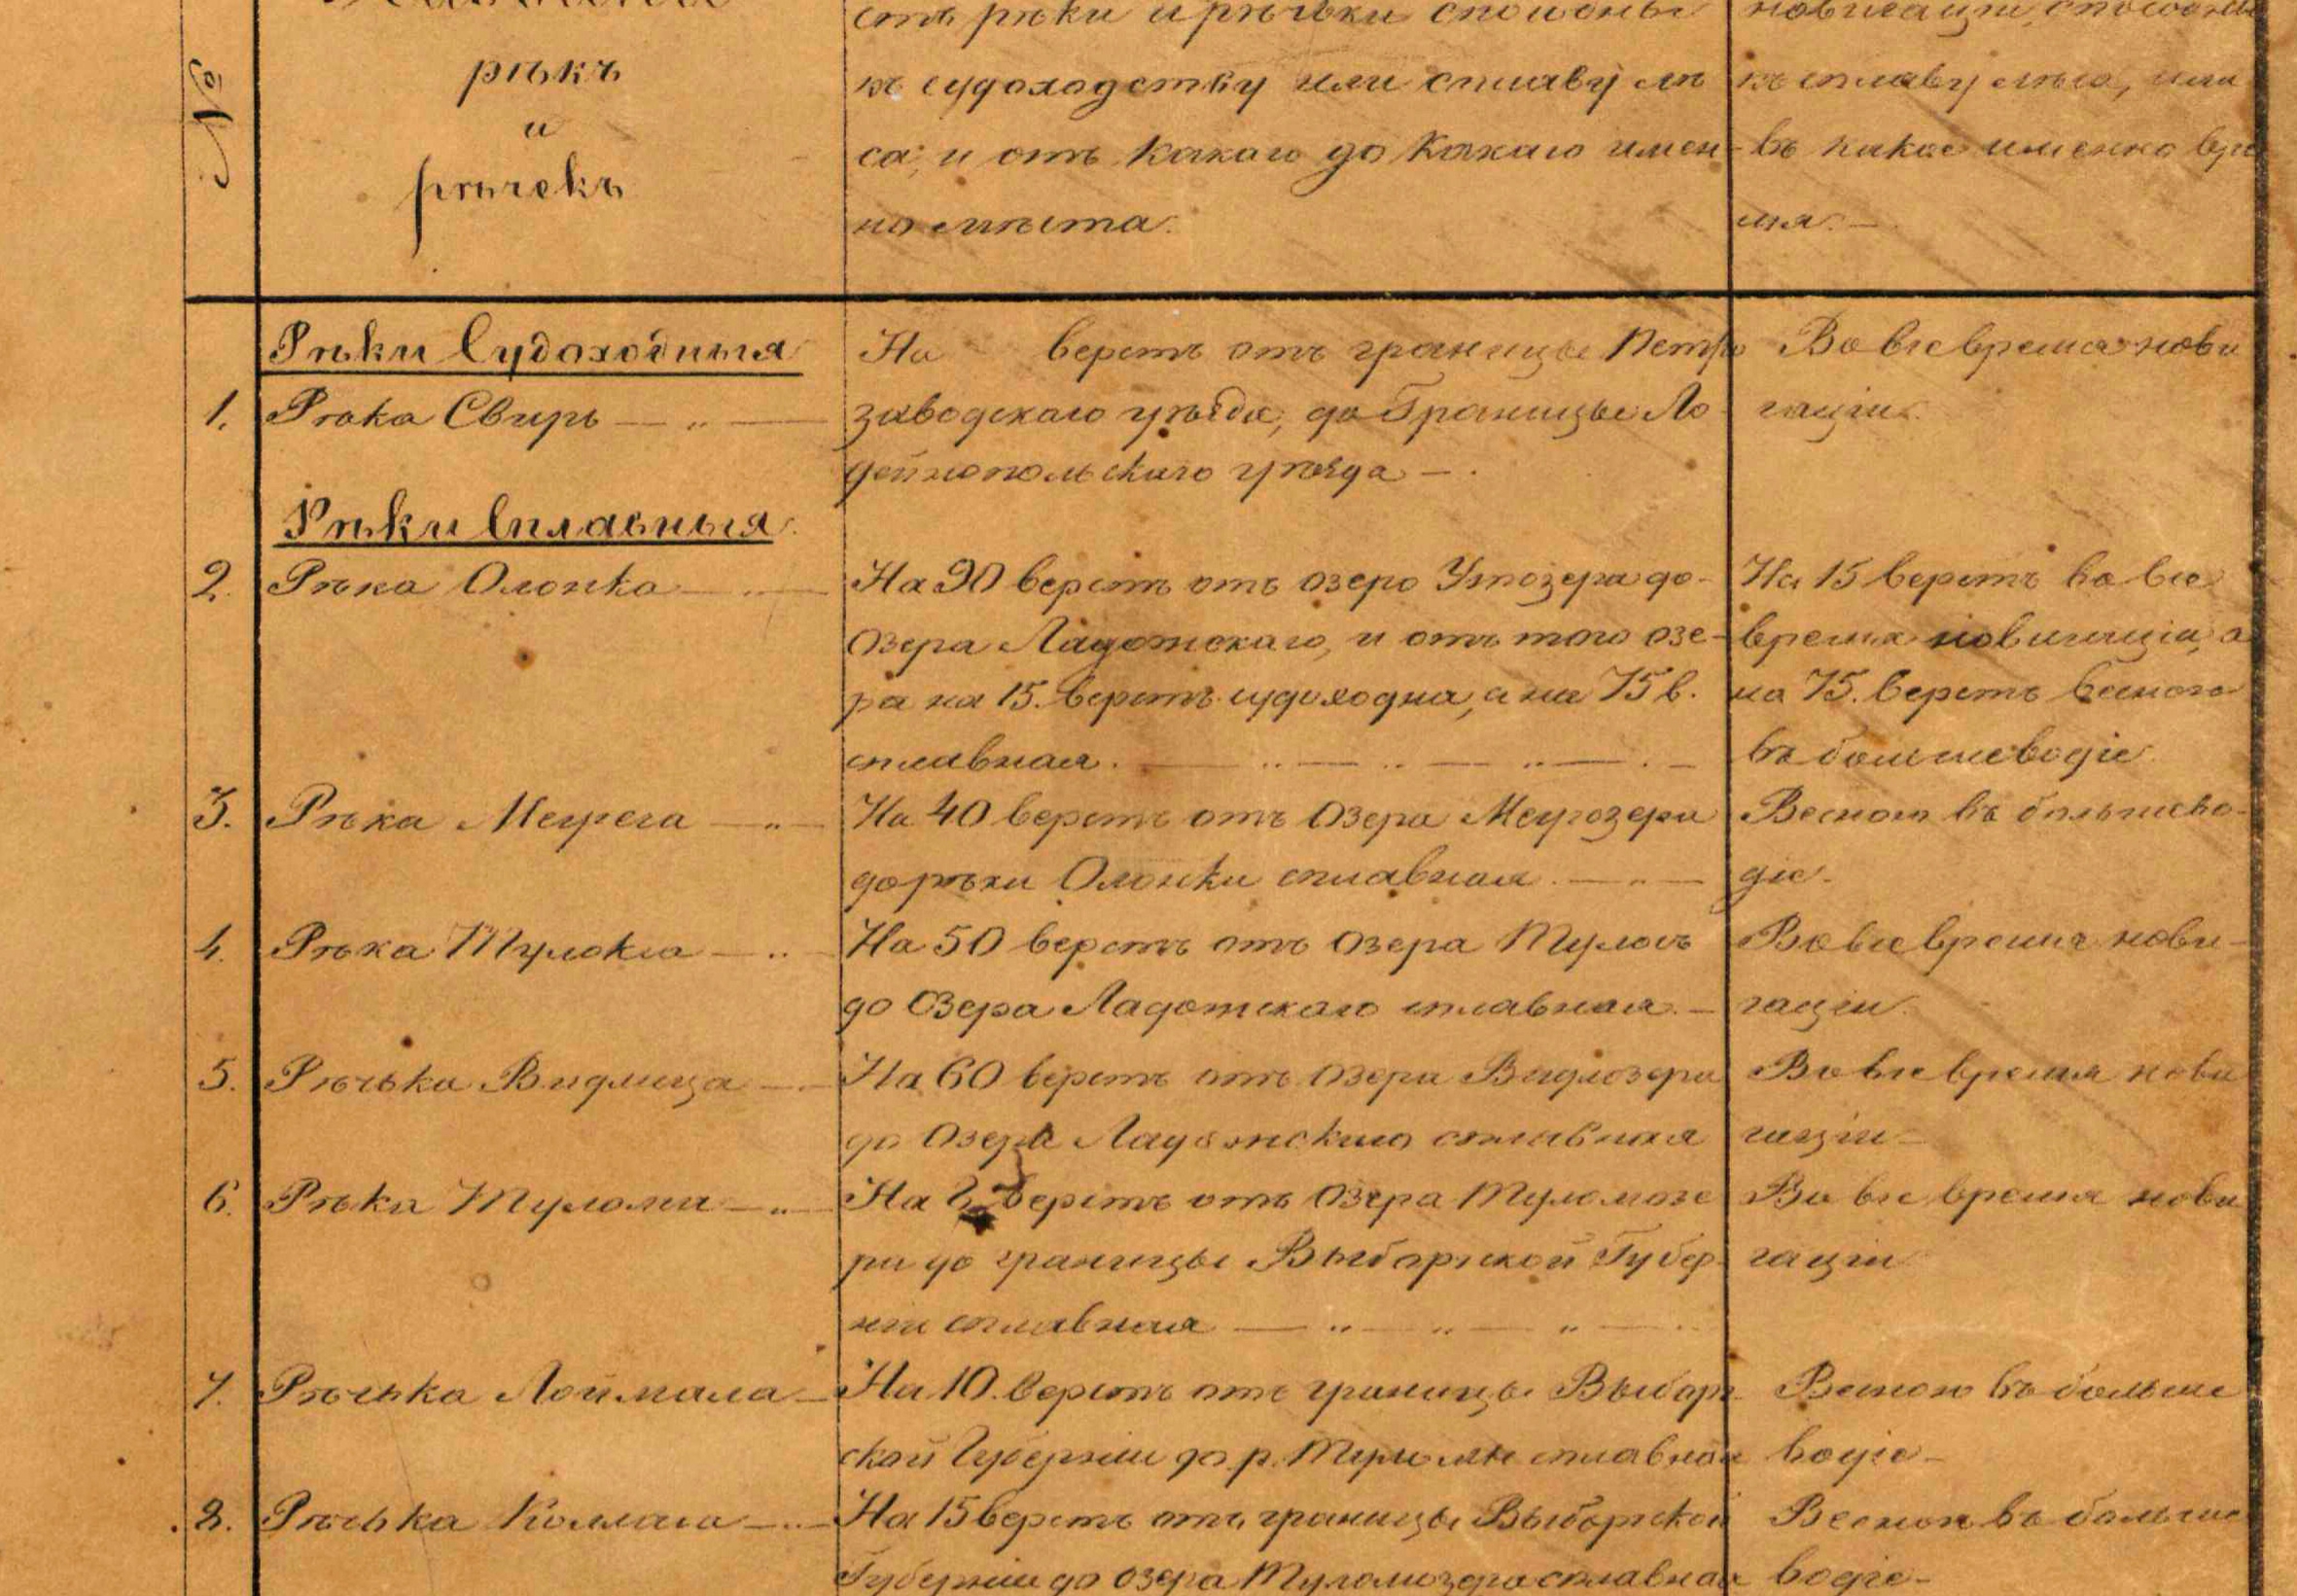 №
рѣкъ
и
рѣчекъ
сть рѣки и рѣчьки способны
къ судоходству или сплаву лѣ
са, и отъ какаго до какаго имен-
но мѣста.
къ сплаву лѣса, или
въ какое именно вре
мя. —
Рѣки Судоходныя
На верстъ отъ границы Петро
Во все время нави
1. Рѣка Свирь — „ —
заводскаго уѣзда, до Границы Ло
гаціи.
дейнопольскаго уѣзда —.
Рѣки Сплавныя.
2. Рѣка Олонка — „ —
На 90 верстъ отъ озеро Утозера до-
На 15 верстъ во все
Озера Ладожскаго, и отъ того озе-
время навигаціи, а
ра на 15. верстъ судоходна, а на 75 в.
на 75. верстъ весною
сплавная. — „ — „ — „ — . —
въ большеводіе.
3. Рѣка Мегрега — „ —
На 40 верстъ отъ Озера Мегрозера
Весною въ большево-
до рѣки Олонки сплавная. — „ —
діе.
4. Рѣка Тулокса — „
На 50 верстъ отъ Озера Тулосъ
Во все время нави-
до Озера Ладожскаго сплавная. —
гаціи.
5. Рѣчька Видлица —
На 60 верстъ отъ Озера Видлозера
Во все время нави
до Озера Ладожскаго сплавная
гаціи —
6. Рѣка Тулома — „ —
На верстъ отъ Озера Туломозе
Во все время нави
ра до границы Выборгской Губер-
гаціи
ніи сплавная — „ — „ — „ — .
7. Рѣчька Лоймала —
На 10. верстъ отъ границы Выборг-
Весною въ больше
ской Губерніи до р. Туломы сплавная
водіе —
8. Рѣчька Колласа — „ —
На 15 верстъ отъ границы Выборгской
Весною въ больше
Губерніи до озера Туломозера сплавная
водіе —